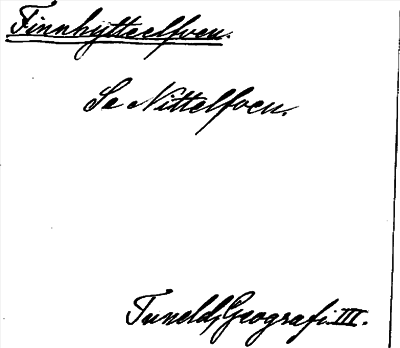 Finnhytteelfven.
Se Nittelfven.
Tuneld, Geografi. III.